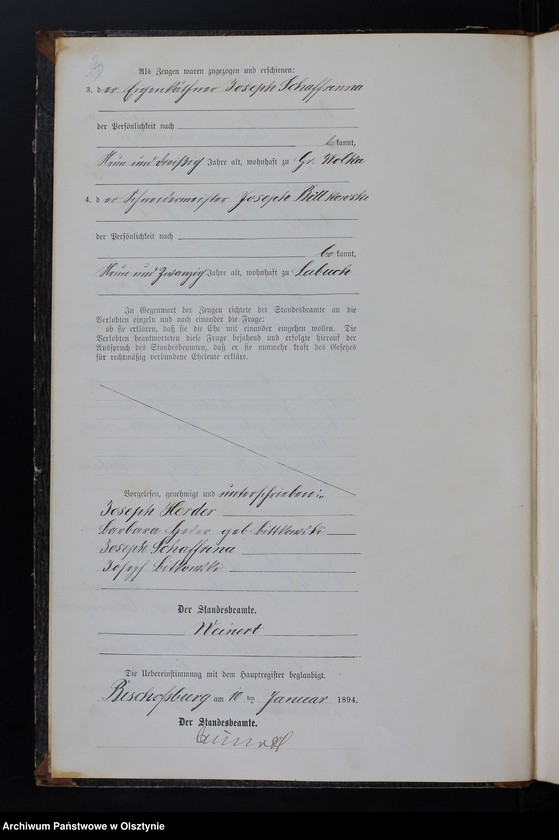 Als Zeugen waren zugezogen und erschienen:
3. der Eigenkäthner Joseph Schaffrinna
der Persönlichkeit nach
bekannt,
Neun und dreißig Jahre alt, wohnhaft zu Gr. Wolka
4. der Schneidermeister Joseph Bittkowski
der Persönlichkeit nach
bekannt,
Neun und Zwanzig Jahre alt, wohnhaft zu Labuch
In Gegenwart der Zeugen richtete der Standesbeamte an die
Verlobten einzeln und nach einander die Frage:
ob sie erklären, daß sie die Ehe mit einander eingehen wollen. Die
Verlobten beantworteten diese Frage bejahend und erfolgte hierauf der
Ausspruch des Standesbeamten, daß er sie nunmehr kraft des Gesetzes
für rechtmäßig verbundene Eheleute erkläre.
Vorgelesen, genehmigt und unterschrieben:
Joseph Herder
Barbara Herder geb. Bittkowski
Joseph Schaffrina
Josef Bitkowski
Der Standesbeamte.
Weinert
Die Uebereinstimmung mit dem Hauptregister beglaubigt.
Bischofsburg am 10 ten Januar 1894.
Der Standesbeamte.
Archiwum Państwowe w Olsztynie